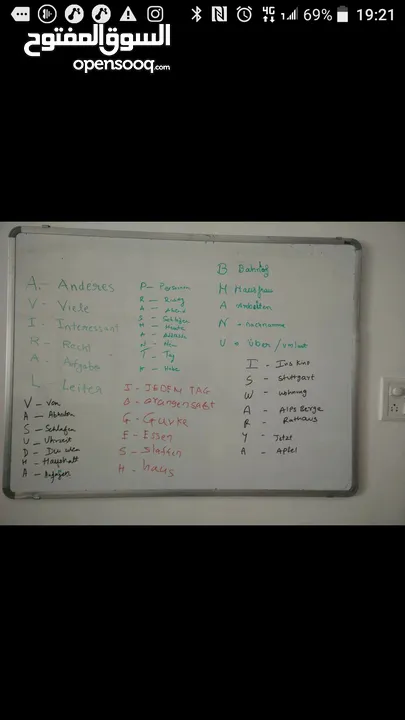 69% 19:21
السوق المفتوح
opensooq.com
A - Anderes
V - Viele
I - Interessant
R - Recht
A - Aufgabe
L Leiter
V - Von
A - Abholen
S - Schlafen
U - Uhrzeit
D -
H - Haushalt
A -
P - Personen
R -
A - Abend
S - Schlafen
H - Heute
A -
N - Neu
T - Tag
I - JEDEM TAG
O - orangensaft
G - Gurke
E - Essen
S -
H - haus
B Bahnhof
H Hausfrau
A Arbeiten
N - nachname
U - Über /
I - Ins Kino
S - Stuttgart
W - wohnung
A - Berge
R - Rathaus
Y - Jetzt
A - Apfel